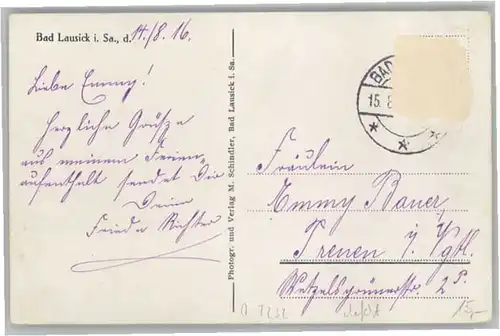 Bad Lausick i. Sa., d. 14/8.16.
Liebe Emmy!
Herzliche Grüsze
aus meinem Ferien-
aufenthalt sendet Dir
Deine
Frieda Richter
Photogr. und Verlag M. Schindler, Bad Lausick i. Sa.
BAD
15. 8
Fräulein
Emmy Bauer,
Treuen i. Vgtl.
Wetzelsgrünerstr. 2
15,-